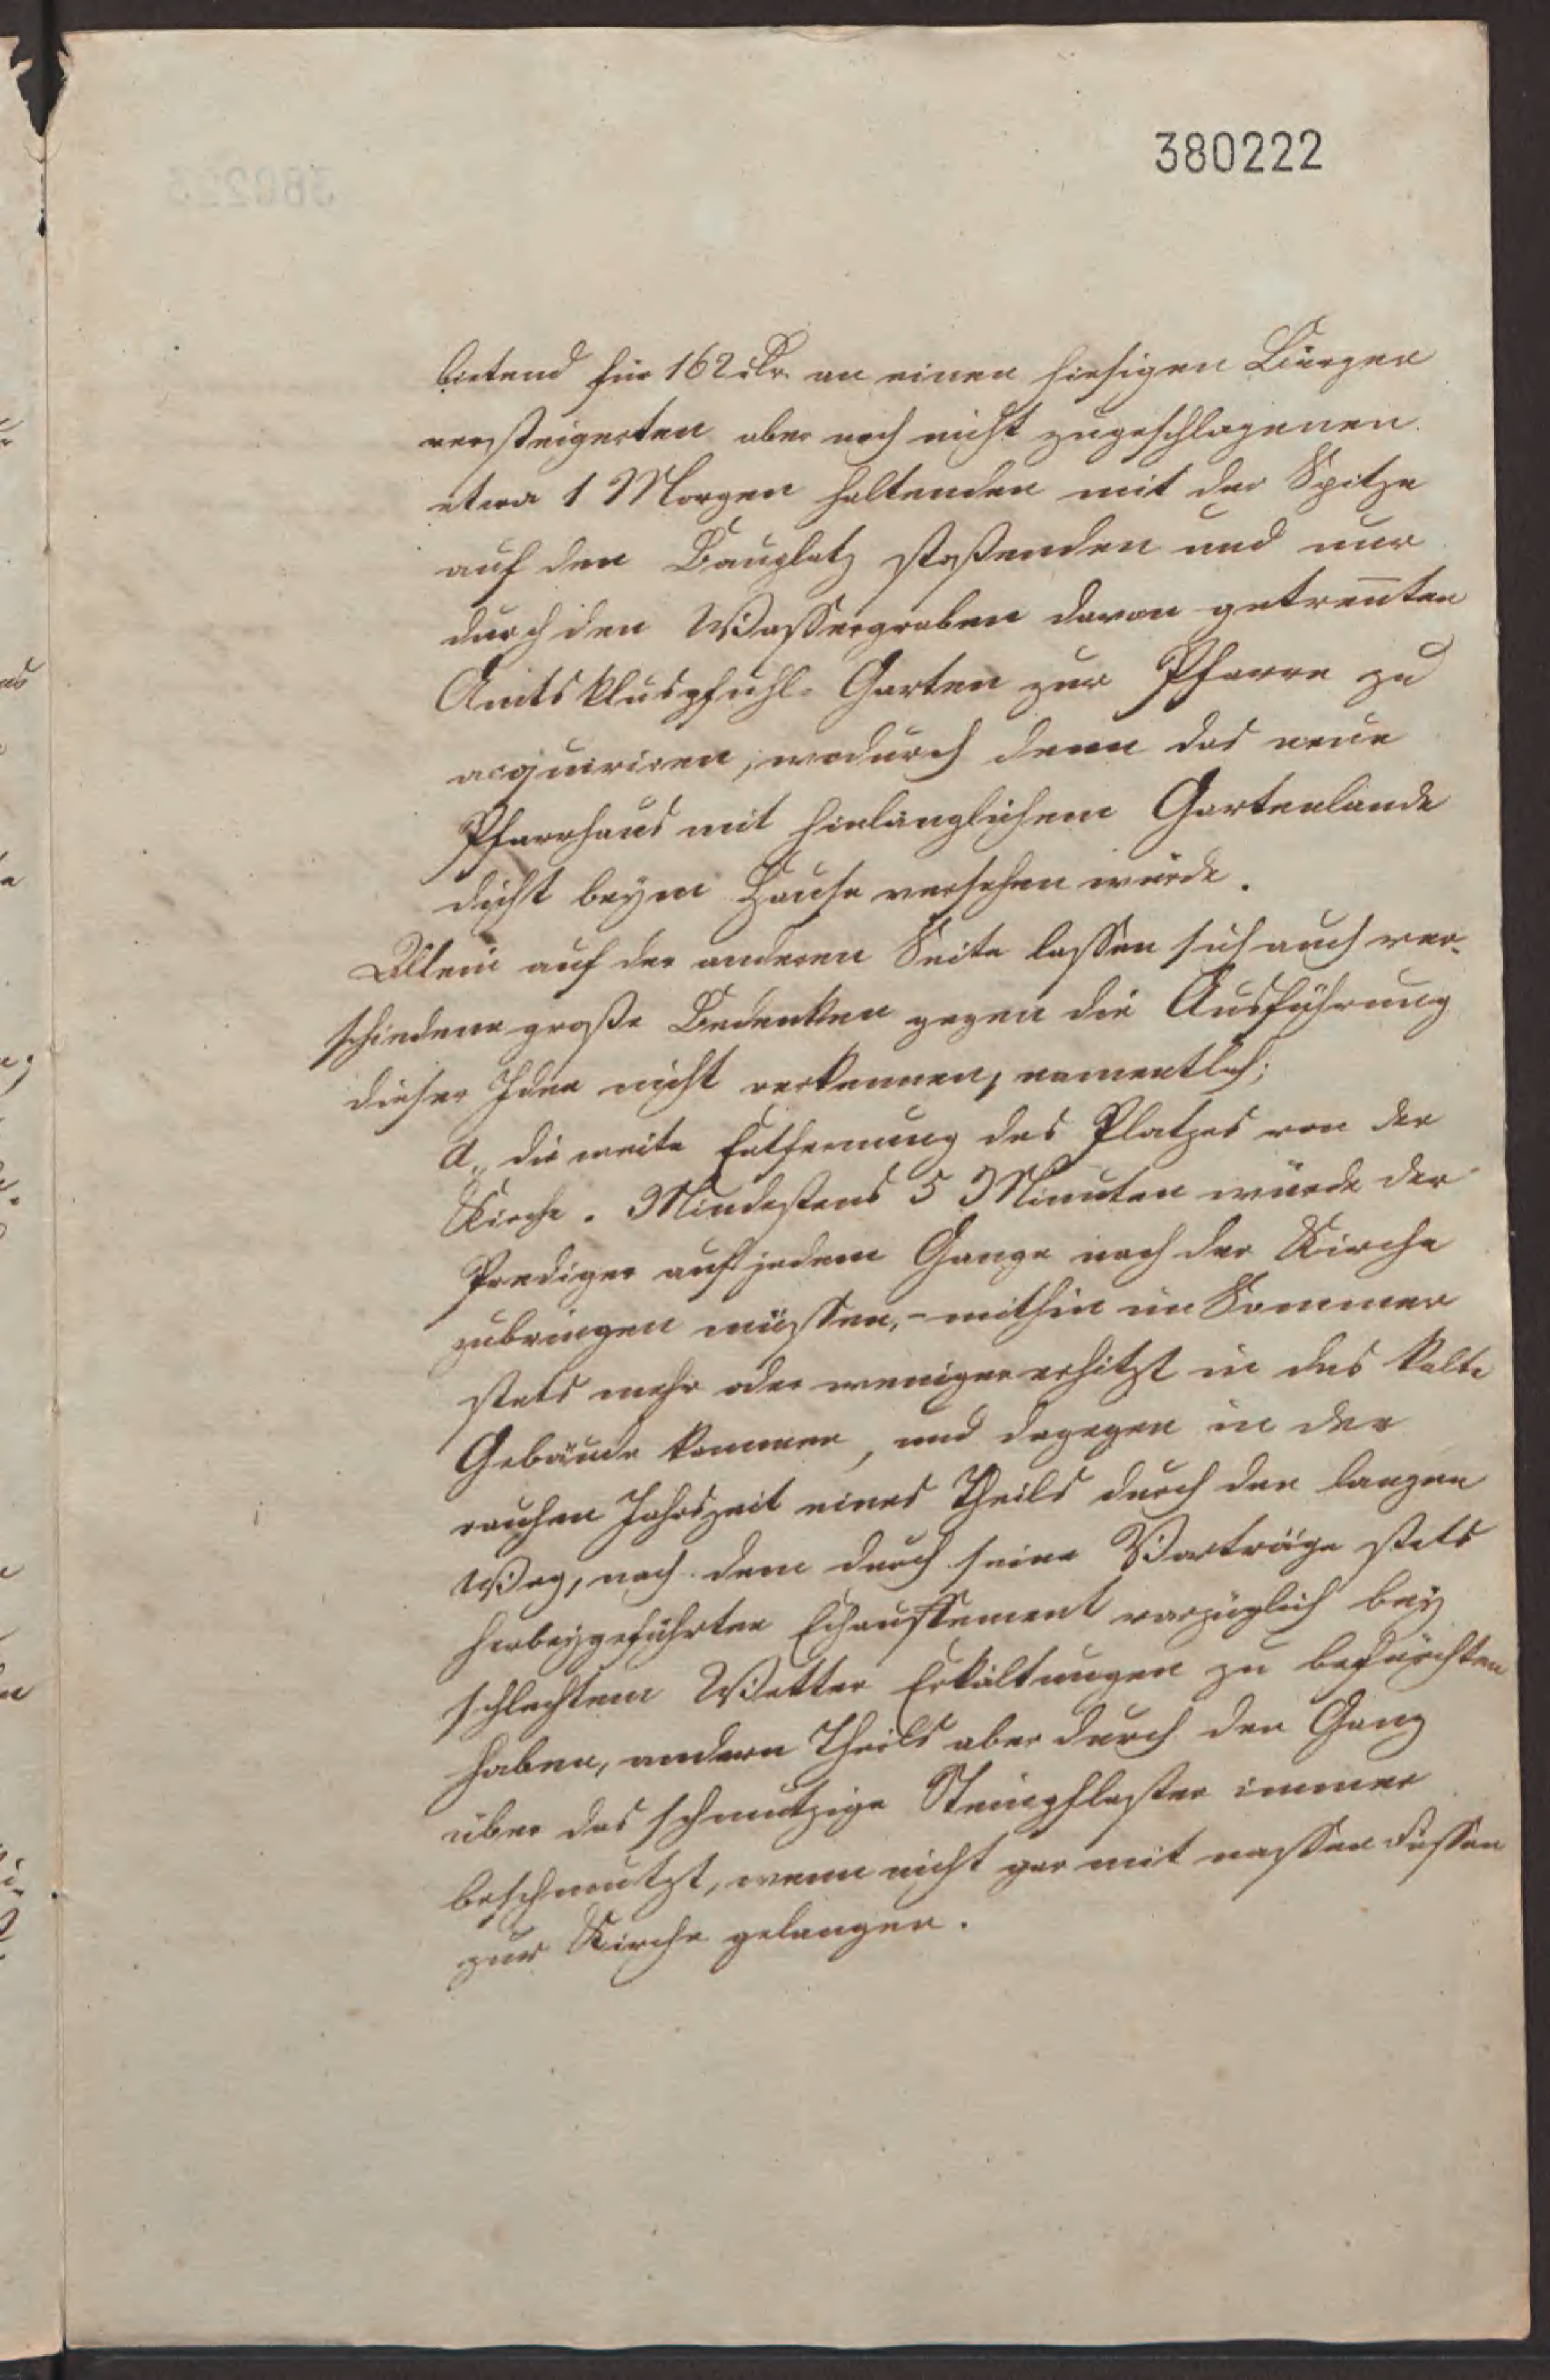 380222
bietend für 162 rthr. an einen hiesigen Bürger
versteigerten aber noch nicht zugeschlagenen
etwa 1 Morgen haltenden mit der Spitze
auf den Bauplatz stoßenden und nur
durch den Wassergraben davon getreñten
Amtskluspfuhl-Garten zur Pfarre zu
acquiriren, wodurch denn das neue
Pfarrhaus mit hinlänglichem Gartenlande
dicht beym Hause versehen würde.
Allein auf der anderen Seite lassen sich auch ver-
schiedene große Bedenken gegen die Ausführung
dieser Idee nicht verkennen, namentlich;
a., die weite Entfernung des Platzes von der
Kirche. Mindestens 5 Minuten würde der
Prediger auf jedem Gange nach der Kirche
zubringen müssen, - mithin im Sommer
stets mehr oder weniger erhitzt in das kalte
Gebäude kommen, und dagegen in der
rauhen Jahrszeit eines Theils durch den langen
Weg, nach dem durch seine Vorträge stets
herbeygeführten Echauffement vorzüglich bey
schlechtem Wetter Erkältungen zu befürchten
haben, andern Theils aber durch den Gang
über das schmutzige Steinpflaster immer
beschmutzt, wenn nicht gar mit nassen Füssen
zur Kirche gelangen.